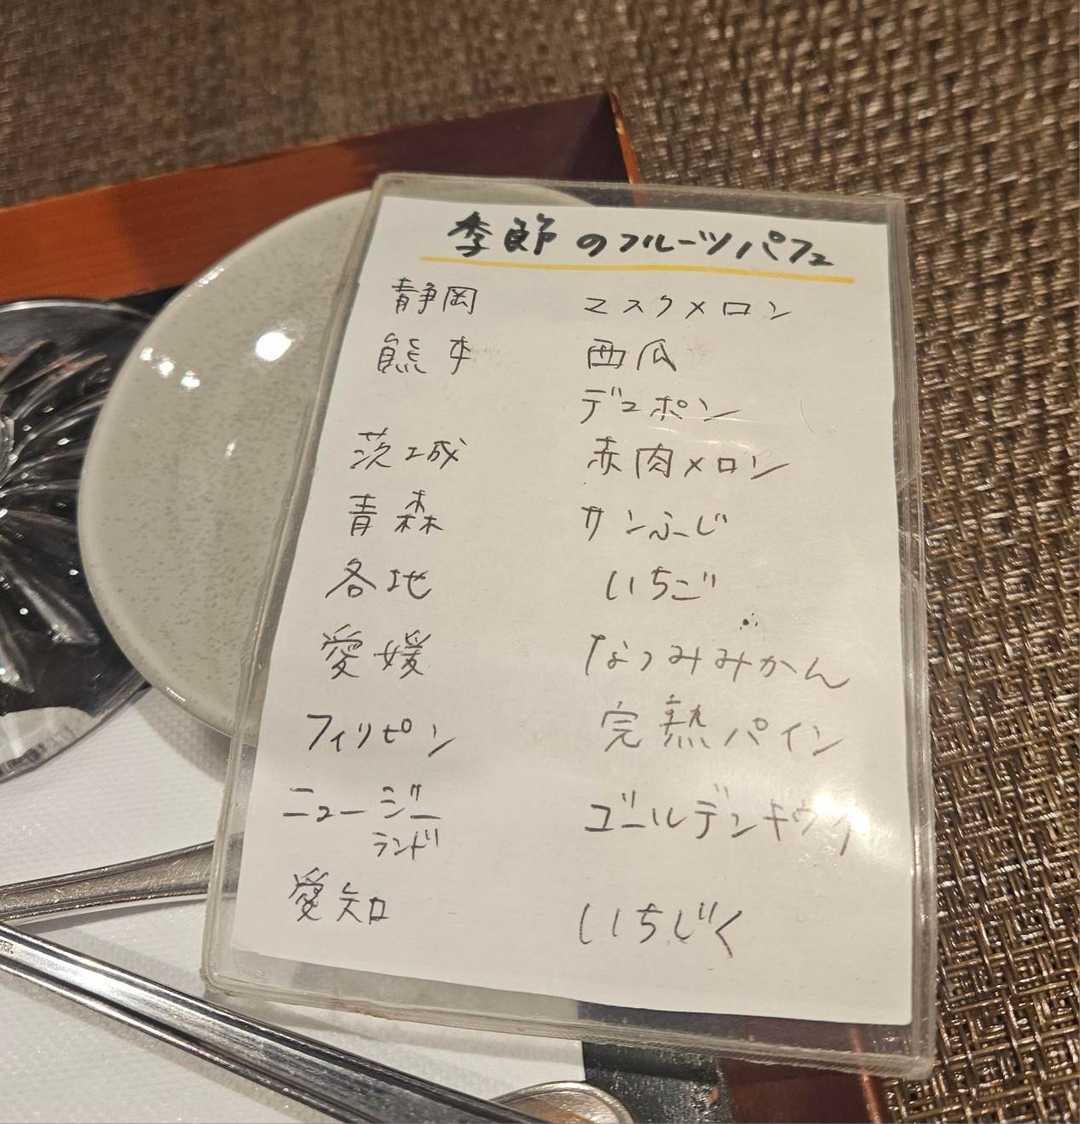 季節のフルーツパフェ
静岡 マスクメロン
熊本 西瓜
デコポン
茨城 赤肉メロン
青森 サンふじ
各地 いちご
愛媛 なつみみかん
フィリピン 完熟パイン
ニュージー ゴールデンキウイ
ランド
愛知 いちじく